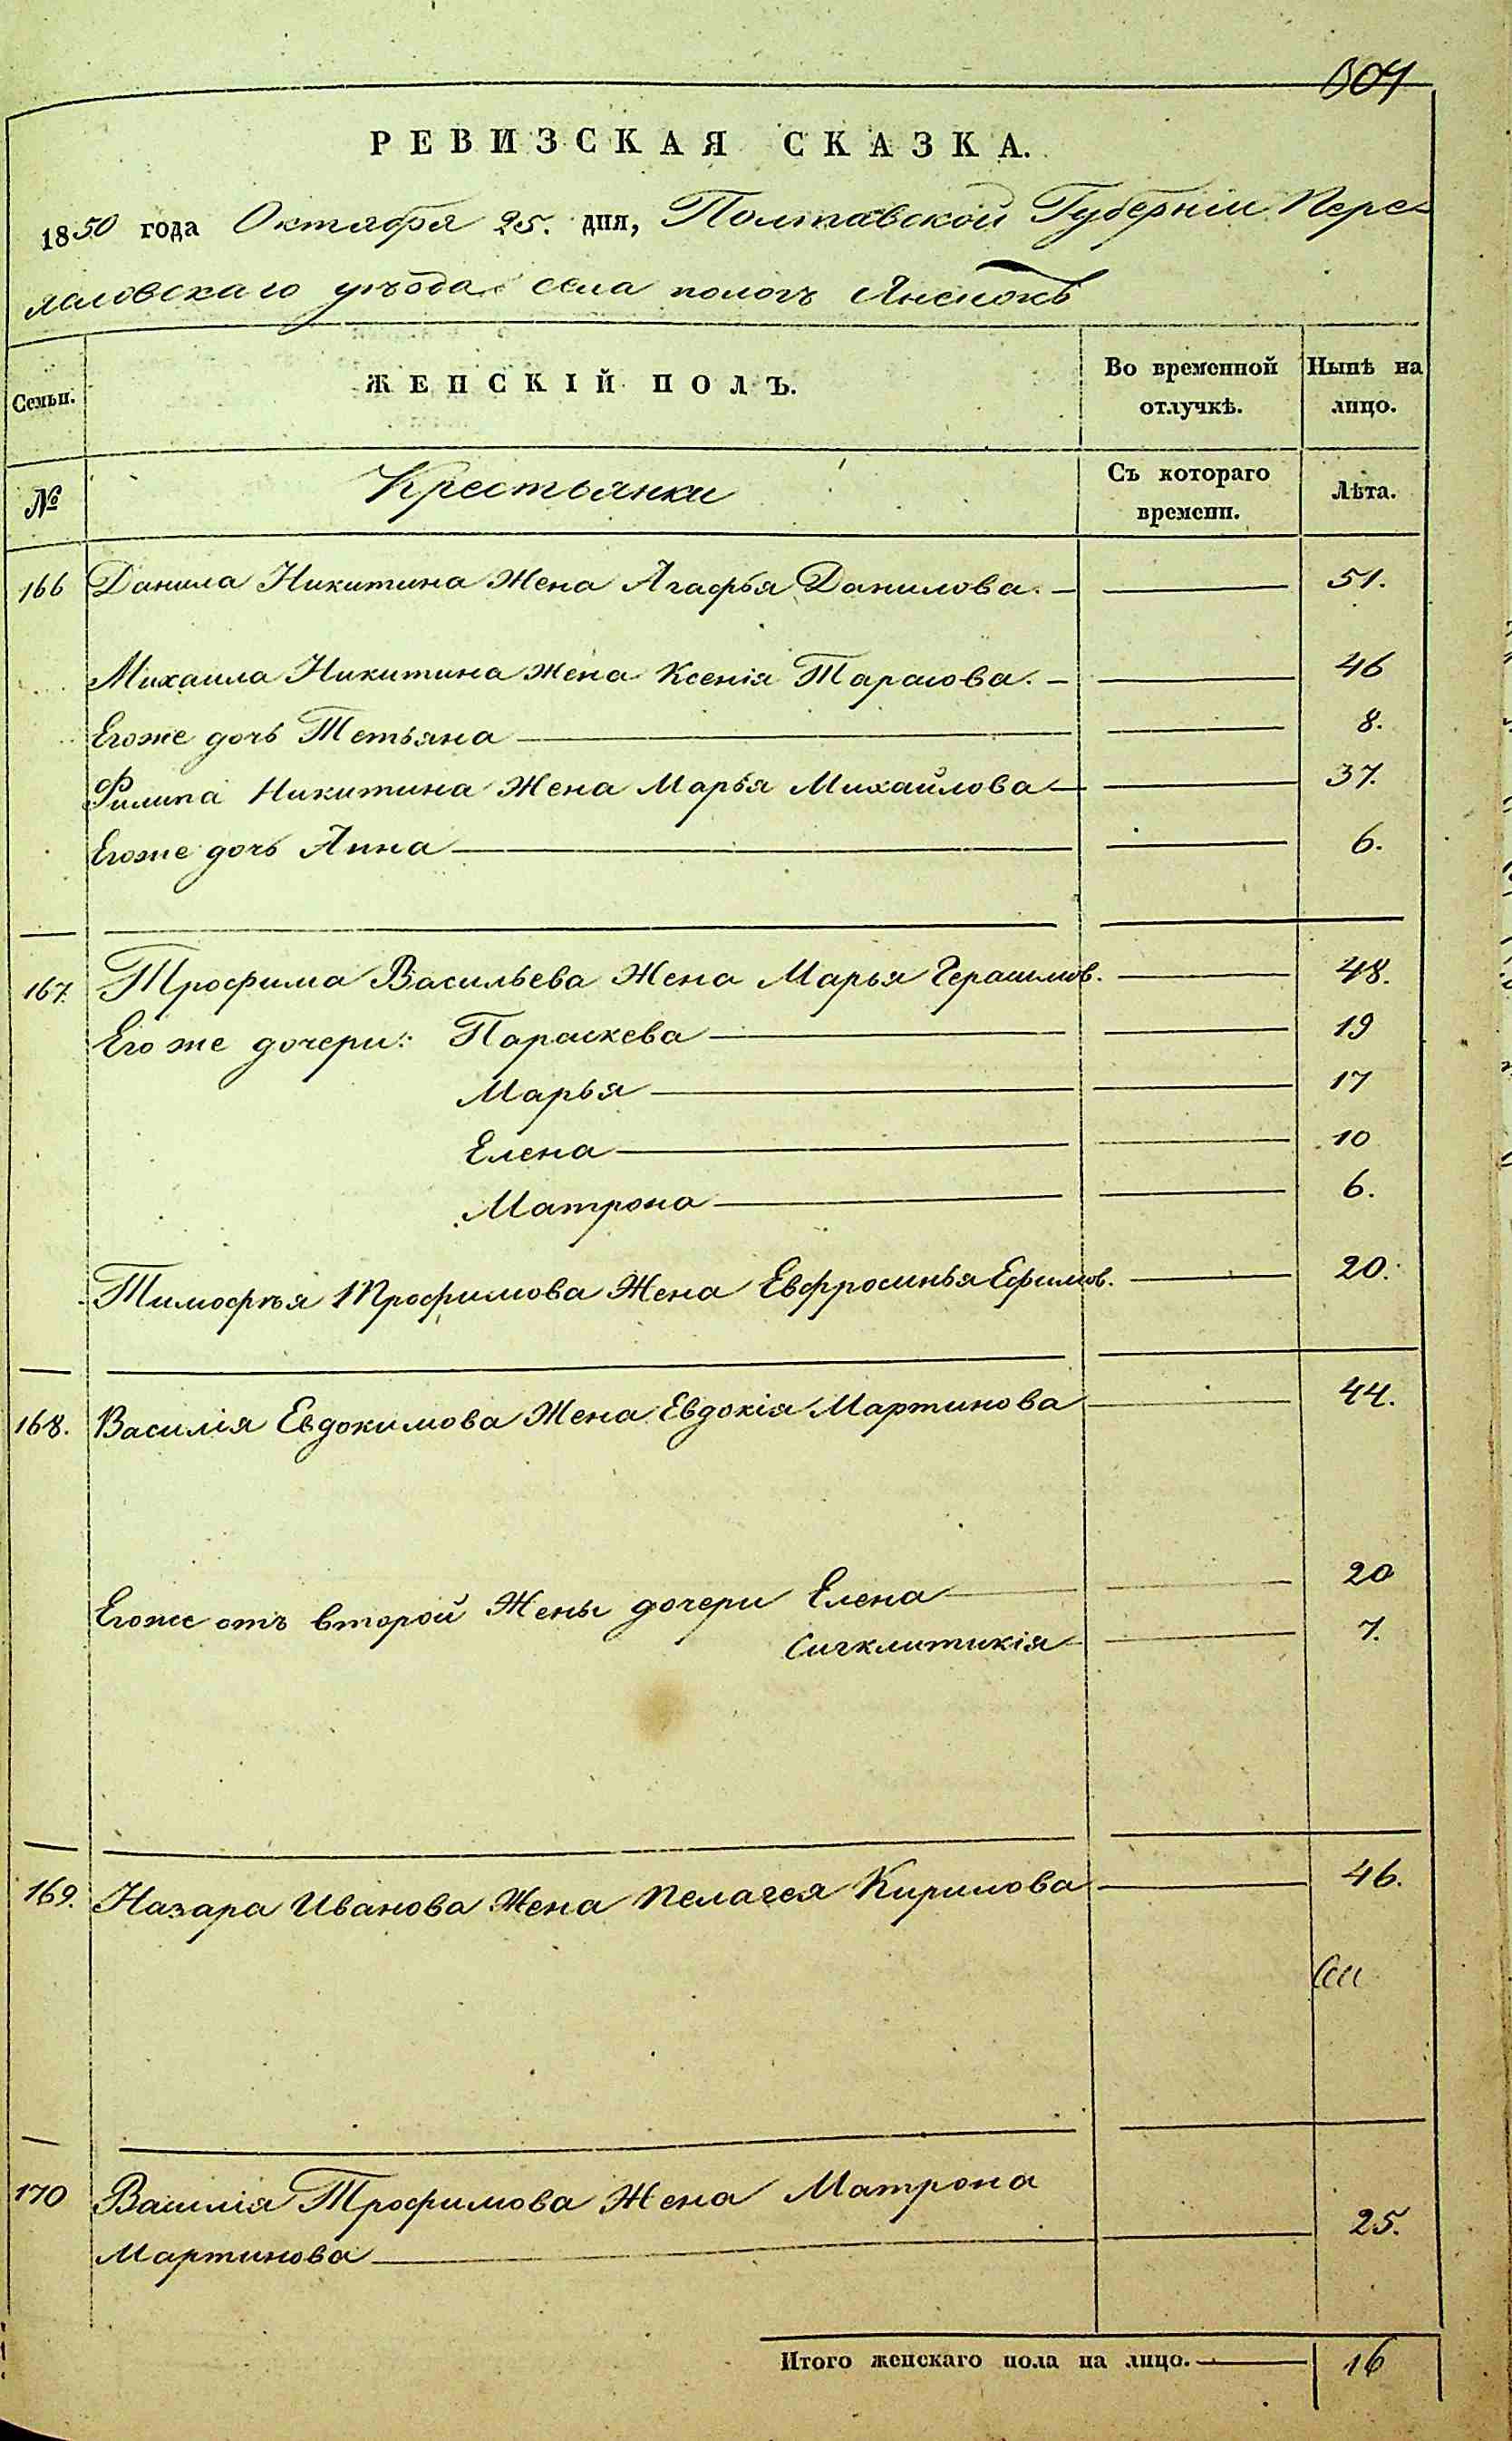 РЕВИЗСКАЯ СКАЗКА.
1850 года Октября 25. дня, Полтавской Губерніи Пере-
яславскаго уѣзда села пологъ Яненокъ
Семьи.
ЖЕНСКІЙ ПОЛЪ.
Во временной отлучкѣ.
Нынѣ на лицо.
№
Крестьянки
Съ котораго времени.
Лѣта.
166 Данила Никитина Жена Агафья Данилова. — 51.
Михаила Никитина Жена Ксенія Тарасова. — 46
Егоже дочь Тетьяна — 8.
Филипа Никитина Жена Марья Михайлова — 37.
Егоже дочь Анна — 6.
167. Трофима Васильева Жена Марья Герасимов. — 48.
Его же дочери: Параскева — 19
Марья — 17
Елена — 10
Матрона — 6.
Тимофѣя Трофимова Жена Евфросинья Ефимов. — 20.
168. Василія Евдокимова Жена Евдокія Мартинова — 44.
Егоже отъ второй Жены дочери Елена — 20
Сигклитикія — 7.
169. Назара Иванова Жена Пелагея Кирилова — 46.
170 Василія Трофимова Жена Матрона
Мартинова — 25.
Итого женскаго пола на лицо. — 16